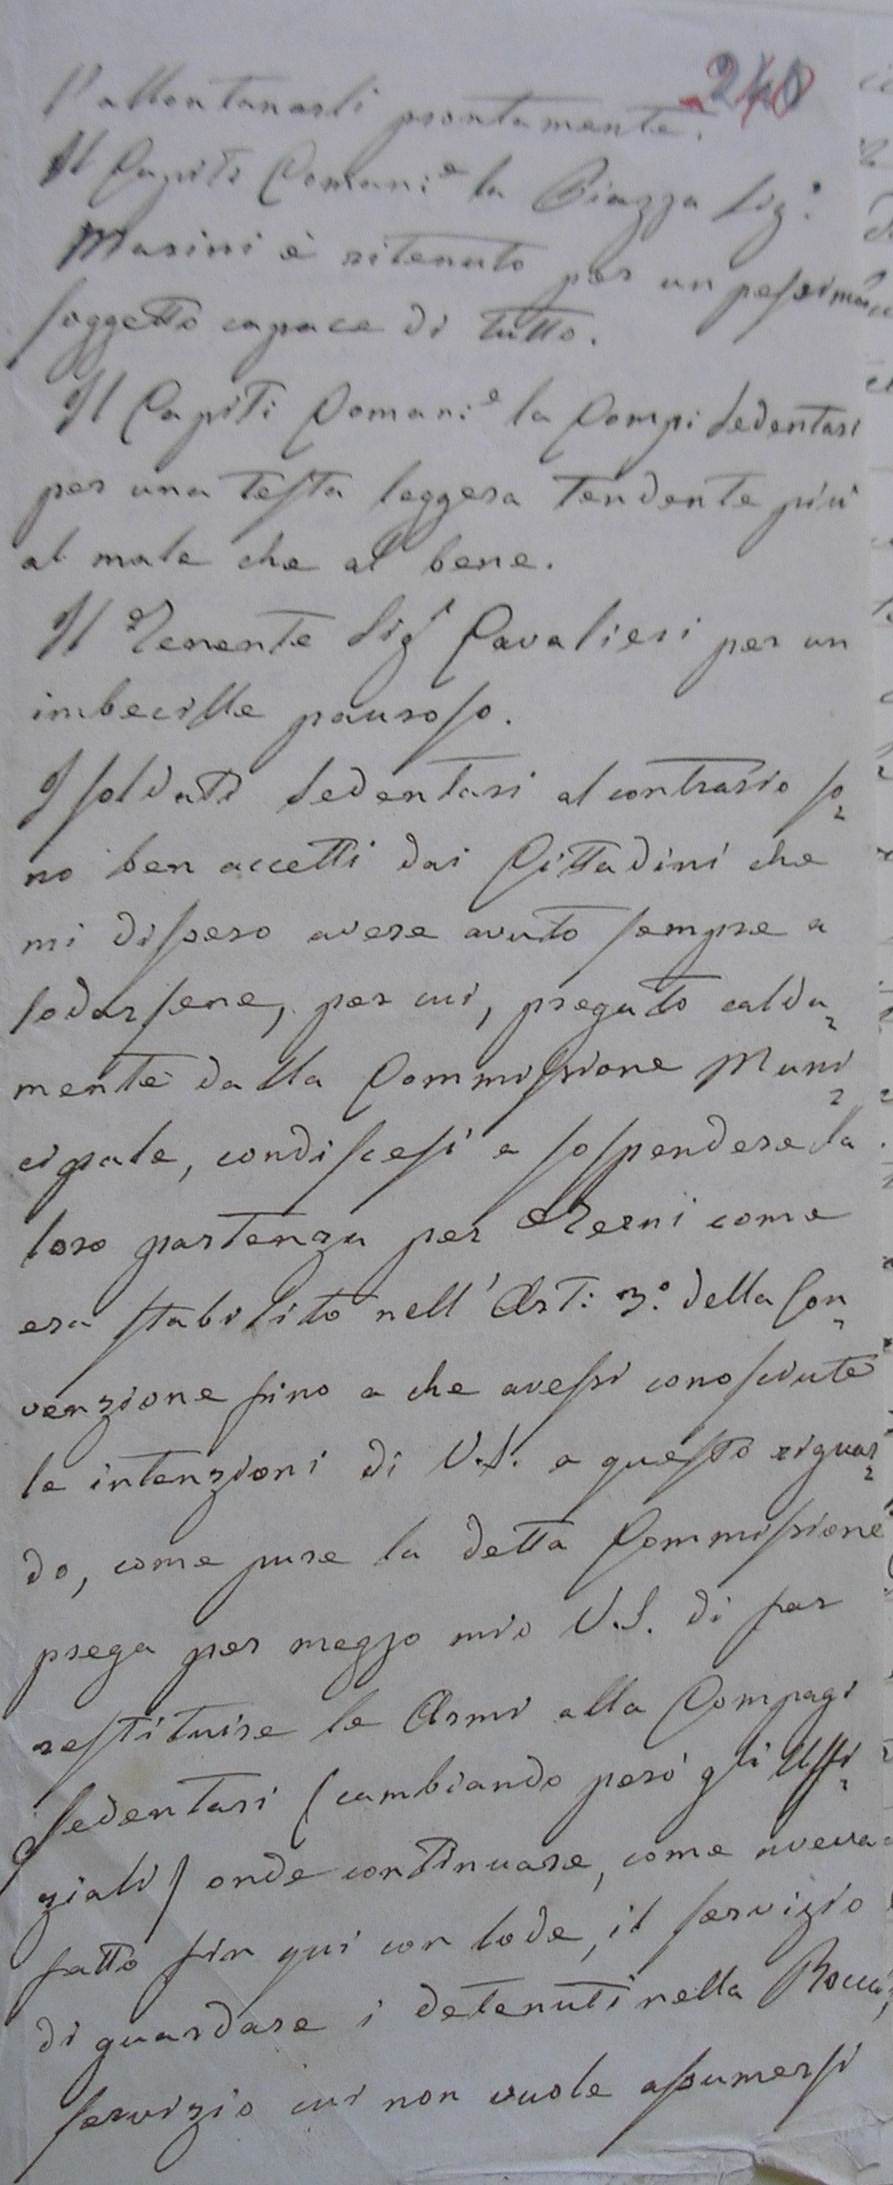 240
l'allontanarli prontamente.
Il Capit: Coman:e la Piazza Sig:
Masini è ritenuto per un pessimo
soggetto capace di tutto.
Il Capit: Coman:e la Comp: Sedentari
per una testa leggera tendente più
al male che al bene.
Il Tenente Sigr Cavalieri per un
imbecille pauroso.
I soldati Sedentari al contrario so=
no ben accetti dai Cittadini che
mi dissero avere avuto sempre a
lodarsene, per cui, pregato calda=
mente dalla Commissione Muni=
cipale, condiscesi a sospendere la
loro partenza per Terni come
era stabilito nell'Art: 3.° della Con=
venzione fino a che avessi conosciute
le intenzioni di V.S. a questo riguar=
do, come pure la detta Commissione
prega per mezzo mio V.S. di far
restituire le Armi alla Compag:
Sedentari (cambiando però gli Uffi=
ziali) onde continuare, come aveva
fatto fin qui con lode, il servizio
di guardare i detenuti nella Rocca,
servizio cui non vuole assumersi